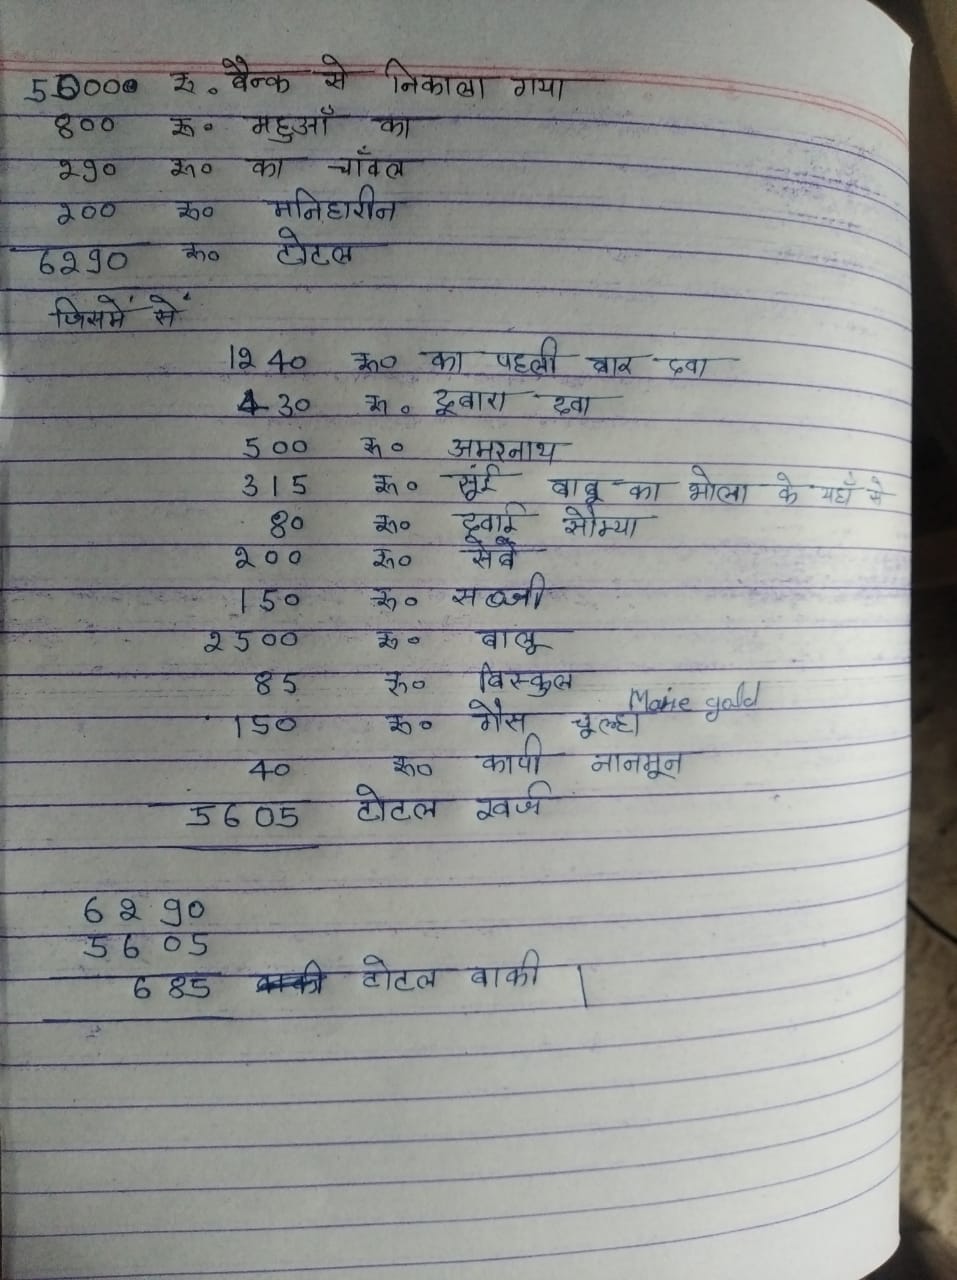 5000 रु. बैन्क से निकाला गया
800 रू० महुआँ का
290 रू० का चाँवल
200 रू० मनिहारीन
6290 रू० टोटल
जिसमें से
1240 रू० का पहली बार दवा
430 रू. दूबारा दवा
500 रू० अमरनाथ
315 रू० सूंई बाबू का भोला के यहाँ से
80 रू० दूवाई सौम्या
200 रू०
150 रू० सब्जी
2500 रू० बालू
85 रू० बिस्कुल Marie gold
150 रू० गैस चूल्हा
40 रू० कापी नानमून
5605 टोटल खर्ज
6290
5605
685 टोटल बाकी